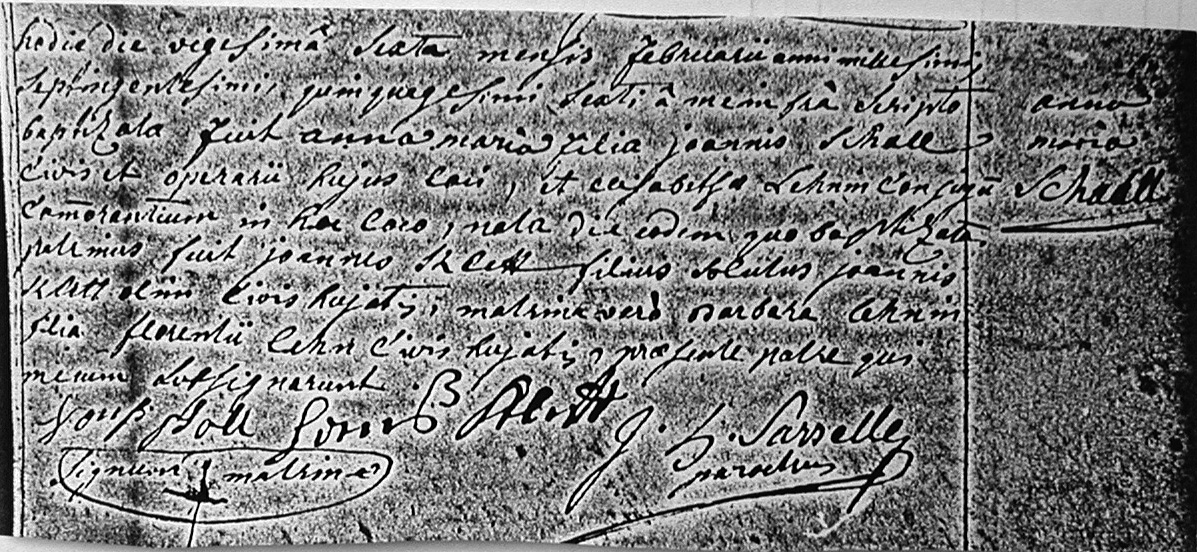 hodie die vigesimâ sexta mensis februarii anni millesimi
septingentesimi, quinquagesimi sexti â me infrà scripto
baptizata fuit anna maria filia joannis Schall
civis et operarii hujus loci, et elisabetha Lehnin conjugū
comorantium in hoc loco, nata die eodem quo baptizata
patrinus fuit joannes Klett filius solutus joannis
Klett olim civis hujatis, matrina verò Barbara Lehnin
filia florentii Lehn civis hujatis, præsente patre qui
mecum subsignarunt.
anna
maria
Schaall
Klett
J. Sarselle
parochus
signum matrinæ